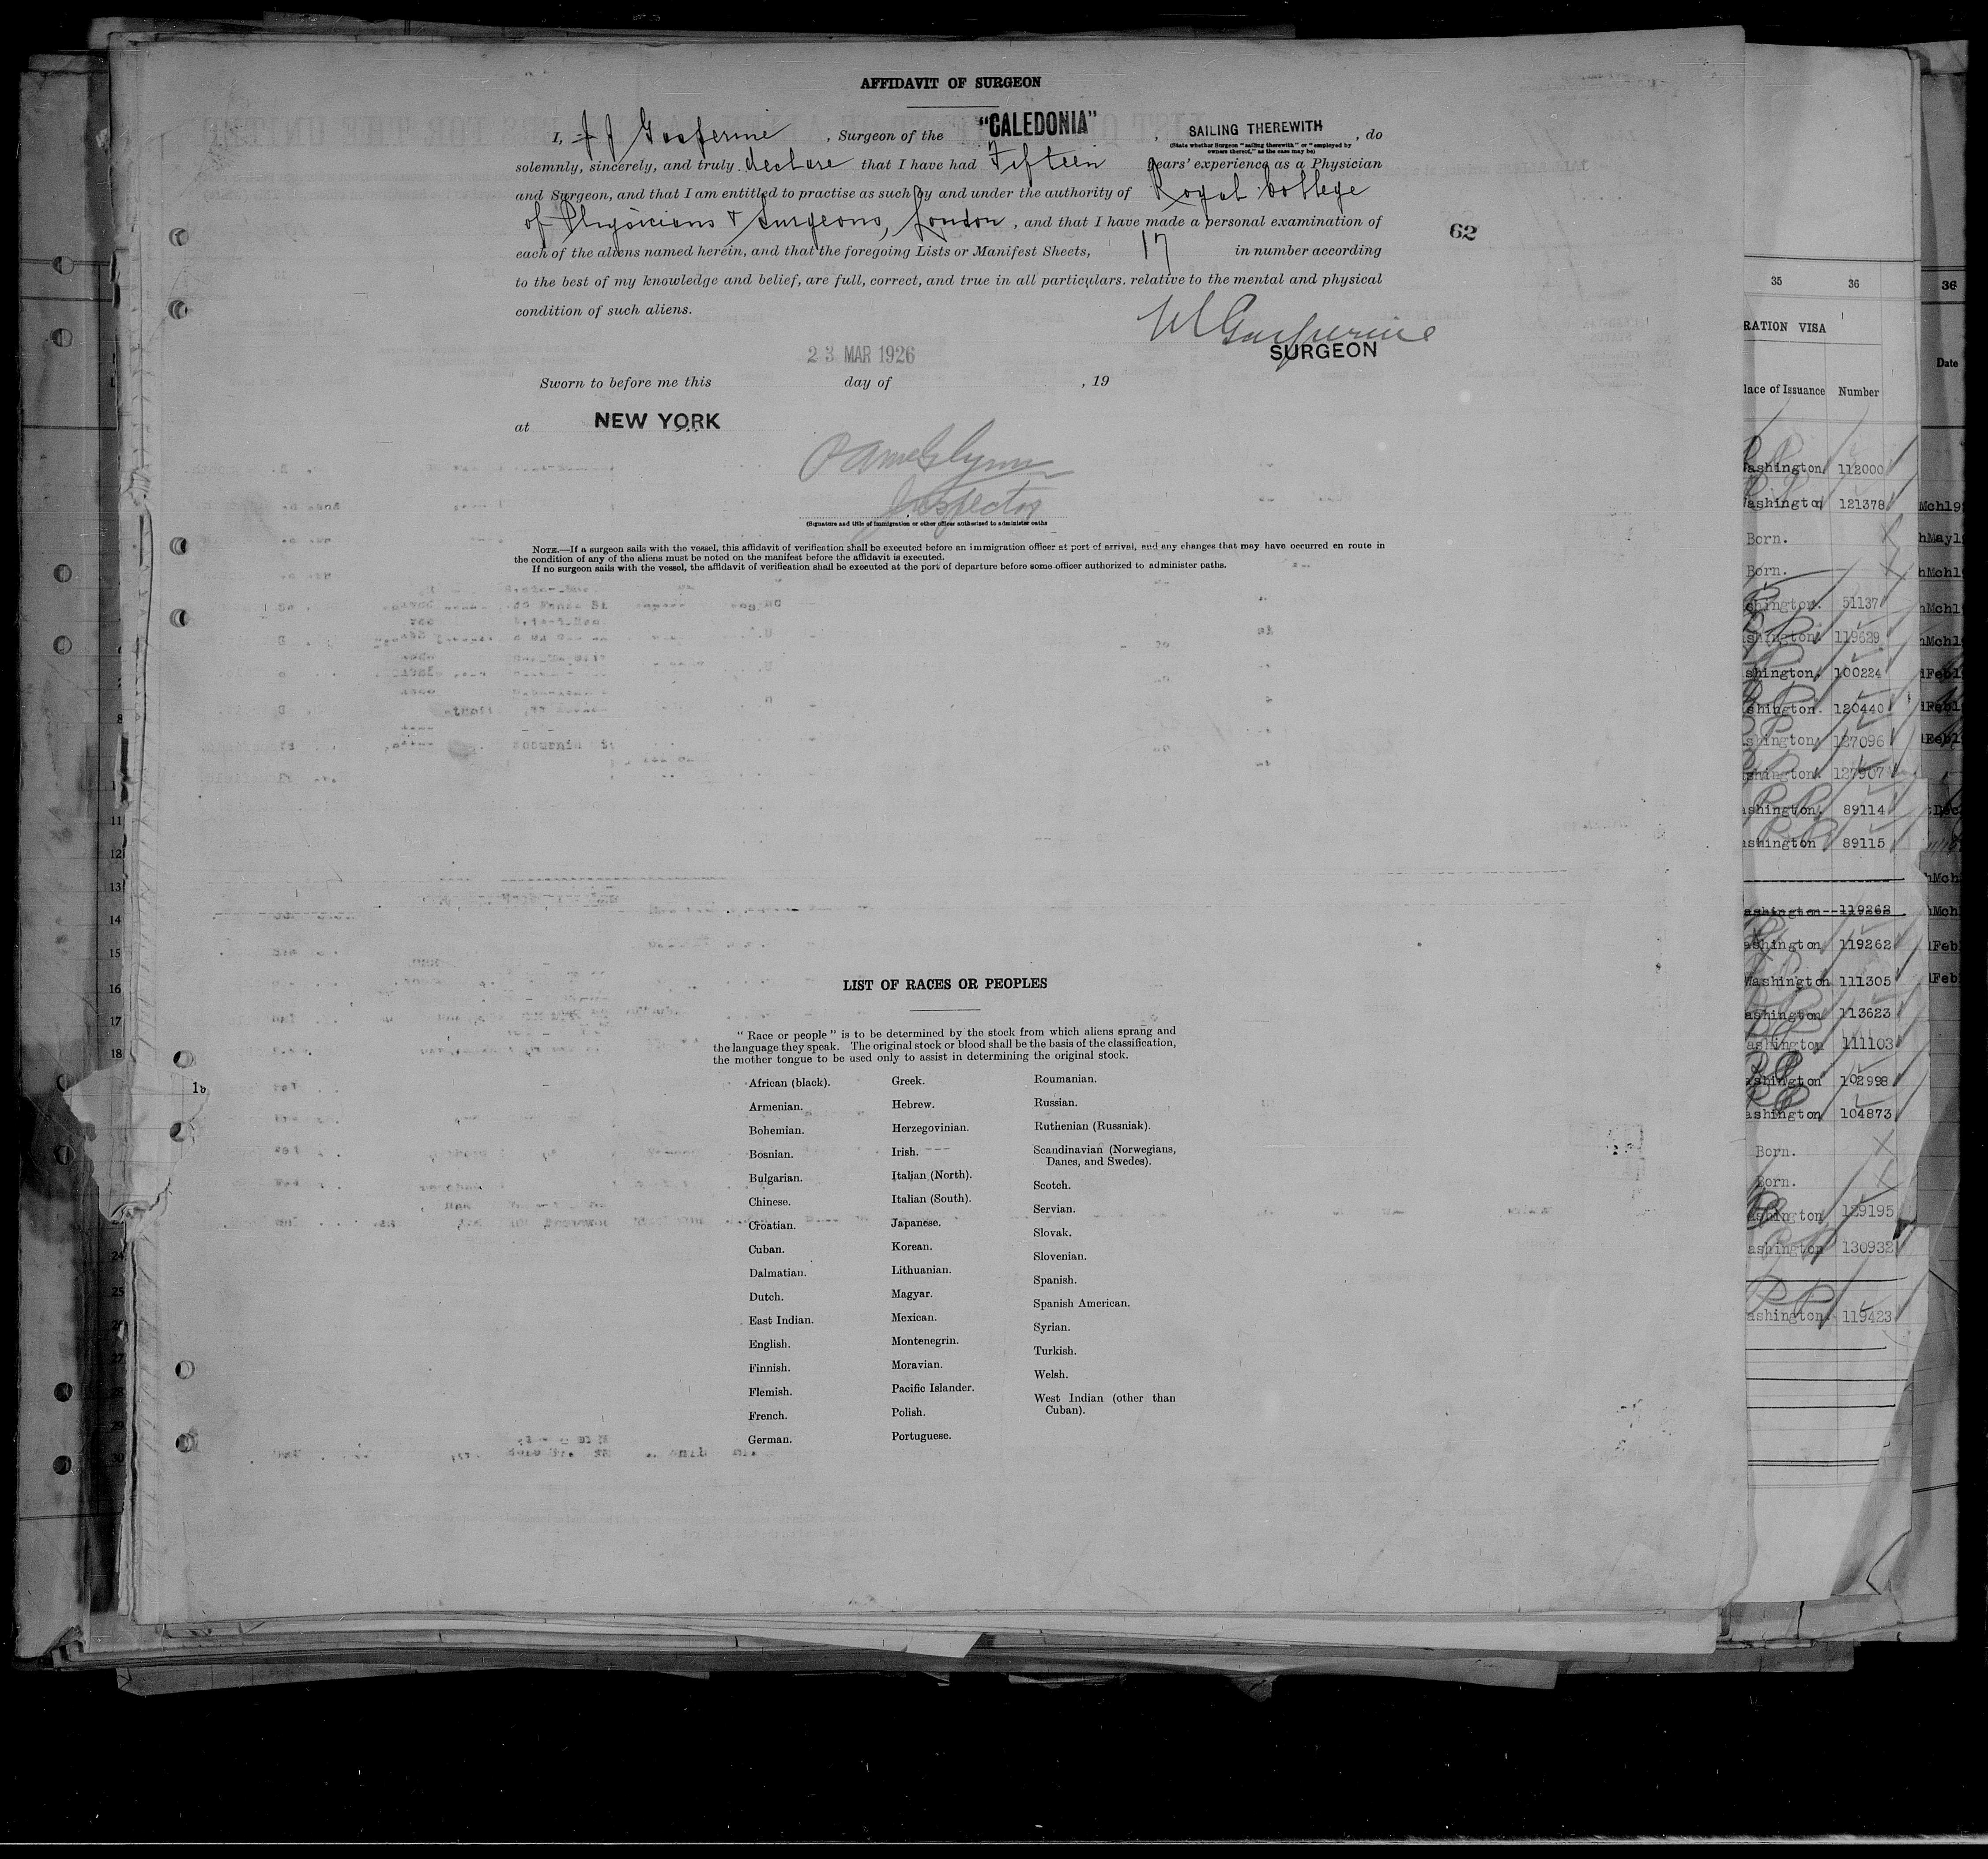 AFFIDAVIT OF SURGEON
I, J J , Surgeon of the "CALEDONIA" , SAILING THEREWITH , do
(State whether Surgeon "sailing therewith" or "employed by
owners thereof," as the case may be)
solemnly, sincerely, and truly declare that I have had Fifteen years' experience as a Physician
and Surgeon, and that I am entitled to practise as such by and under the authority of Royal College
of Physicians & Surgeons, London , and that I have made a personal examination of
each of the aliens named herein, and that the foregoing Lists or Manifest Sheets, 17 in number according
to the best of my knowledge and belief, are full, correct, and true in all particulars. relative to the mental and physical
condition of such aliens.
62
SURGEON
23 MAR 1926
Sworn to before me this day of , 19
at NEW YORK
Inspector
(Signature and title of immigration or other officer authorized to administer oaths
NOTE.—If a surgeon sails with the vessel, this affidavit of verification shall be executed before an immigration officer at port of arrival, and any changes that may have occurred en route in
the condition of any of the aliens must be noted on the manifest before the affidavit is executed.
If no surgeon sails with the vessel, the affidavit of verification shall be executed at the port of departure before some officer authorized to administer oaths.
LIST OF RACES OR PEOPLES
"Race or people" is to be determined by the stock from which aliens sprang and
the language they speak. The original stock or blood shall be the basis of the classification,
the mother tongue to be used only to assist in determining the original stock.
African (black).
Armenian.
Bohemian.
Bosnian.
Bulgarian.
Chinese.
Croatian.
Cuban.
Dalmatian.
Dutch.
East Indian.
English.
Finnish.
Flemish.
French.
German.
Greek.
Hebrew.
Herzegovinian.
Irish.
Italian (North).
Italian (South).
Japanese.
Korean.
Lithuanian.
Magyar.
Mexican.
Montenegrin.
Moravian.
Pacific Islander.
Polish.
Portuguese.
Roumanian.
Russian.
Ruthenian (Russniak).
Scandinavian (Norwegians,
Danes, and Swedes).
Scotch.
Servian.
Slovak.
Slovenian.
Spanish.
Spanish American.
Syrian.
Turkish.
Welsh.
West Indian (other than
Cuban).
35 36
RATION VISA
lace of Issuance Number
ashington 112000
ashington 121378
Born.
Born.
shington. 51137
shington. 119629
shington. 100224
shington. 120440
shington. 127096
shington. 127907
ashington. 89114
ashington 89115
ashington 119262
ashington 119262
Washington 111305
ashington 113623
ashington 111103
ashington 102998
ashington 104873
Born.
Born.
ashington 129195
ashington 130932
ashington. 119423
36
Date
Mch19
May1
Mch1
Mch1
Mch1
Feb1
Feb1
Feb1
Dec
Mch
Mch
Feb
Feb
8
11
12
13
14
15
16
17
18
24
25
26
27
28
29
30